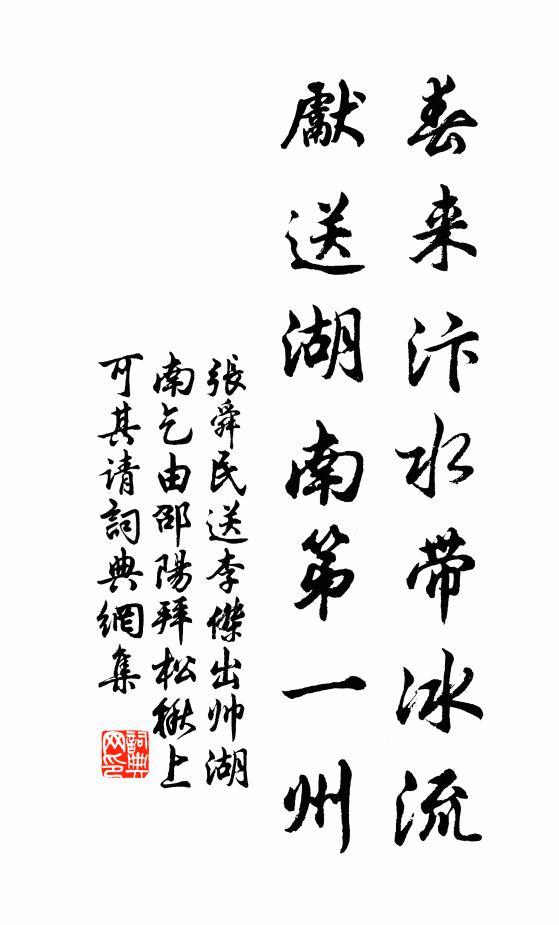 春来汴水带冰流
獻送湖南第一州
張舜民送李傑出帅湖
南乞由邵陽拜松楸上
可其请詞典網集
詞典网印